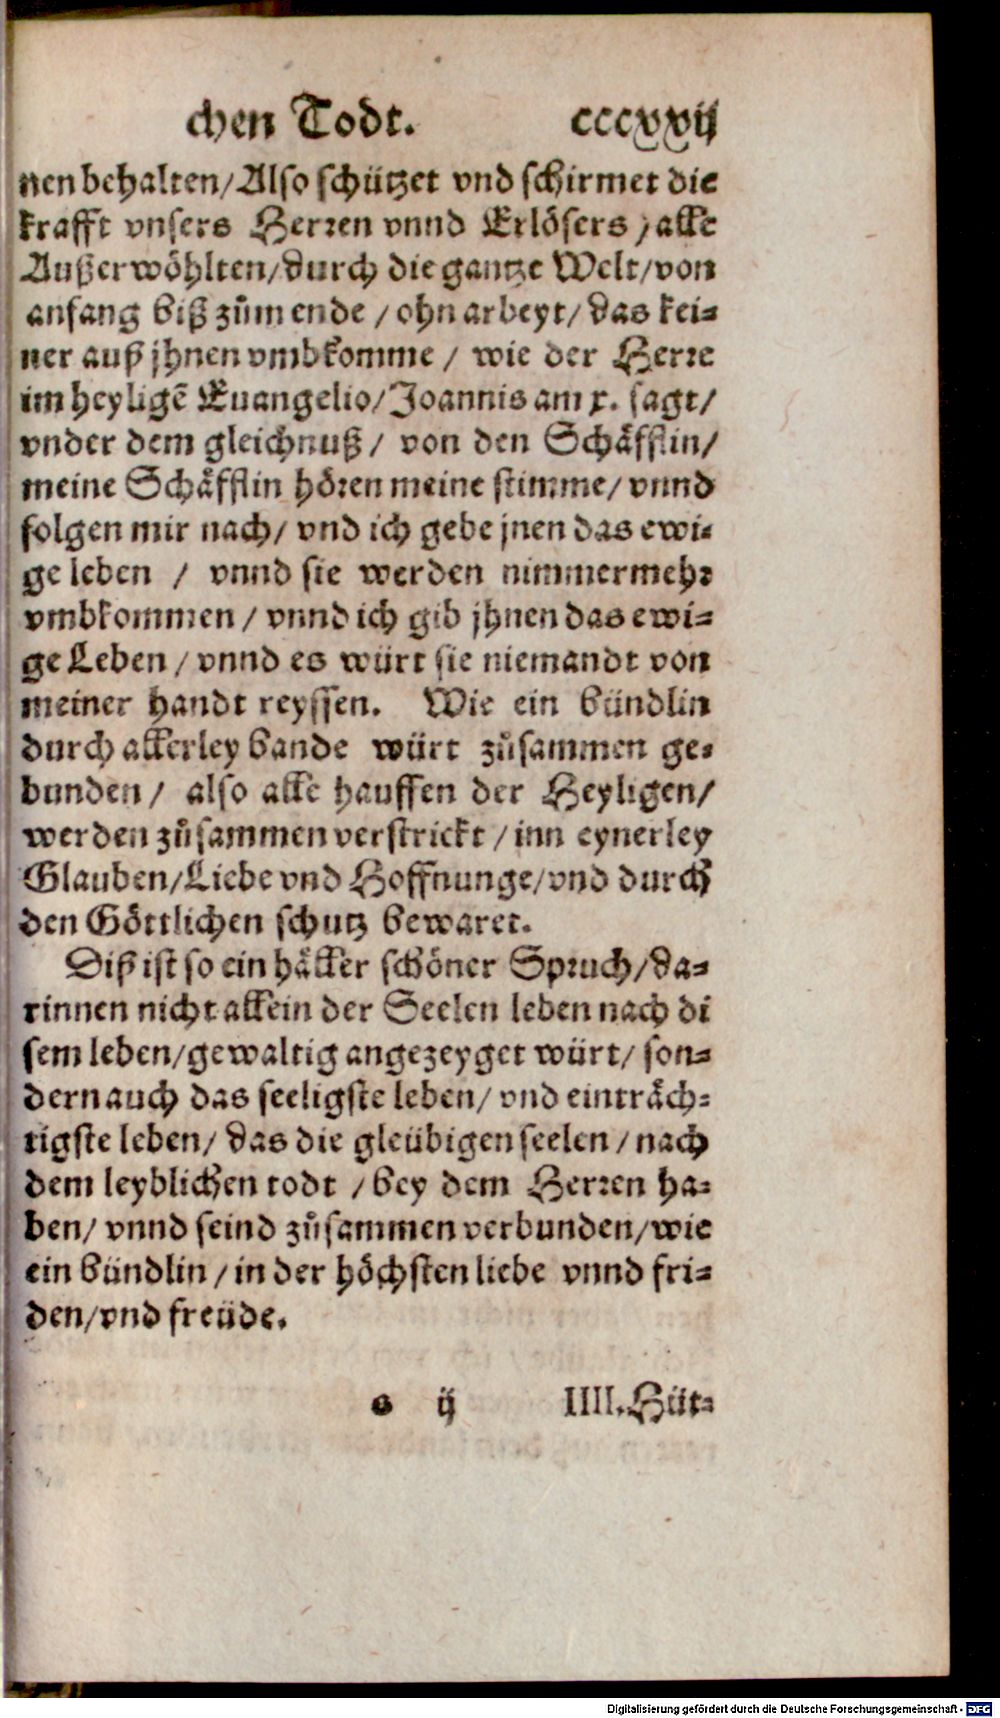 chen Todt. cccxxij
nen behalten/Also schützet vnd schirmet die
krafft vnsers Herren vnnd Erlösers /alle
Außerwöhlten/durch die gantze Welt/von
anfang biß zům ende / ohn arbeyt/ das kei-
ner auß jhnen vmbkomme / wie der Herre
im heyligẽ Euangelio/Joannis am x. sagt/
vnder dem gleichnuß/ von den Schäfflin/
meine Schäfflin hören meine stimme/ vnnd
folgen mir nach/ vnd ich gebe jnen das ewi-
ge leben / vnnd sie werden nimmermehr
vmbkommen / vnnd ich gib jhnen das ewi-
ge Leben / vnnd es würt sie niemandt von
meiner handt reyssen. Wie ein bündlin
durch allerley bande würt zůsammen ge-
bunden / also alle hauffen der Heyligen/
werden zůsammen verstrickt / inn eynerley
Glauben/Liebe vnd Hoffnunge/vnd durch
den Göttlichen schutz bewaret.
Diß ist so ein häller schöner Spruch/da-
rinnen nicht allein der Seelen leben nach di
sem leben/gewaltig angezeyget würt/ son-
dern auch das seeligste leben/ vnd einträch-
tigste leben/ das die gleübigen seelen / nach
dem leyblichen todt / bey dem Herren ha-
ben/ vnnd seind zůsammen verbunden/wie
ein bündlin / in der höchsten liebe vnnd fri-
den/vnd freüde.
s ij IIII. Hüt-
Digitalisierung gefördert durch die Deutsche Forschungsgemeinschaft - DFG